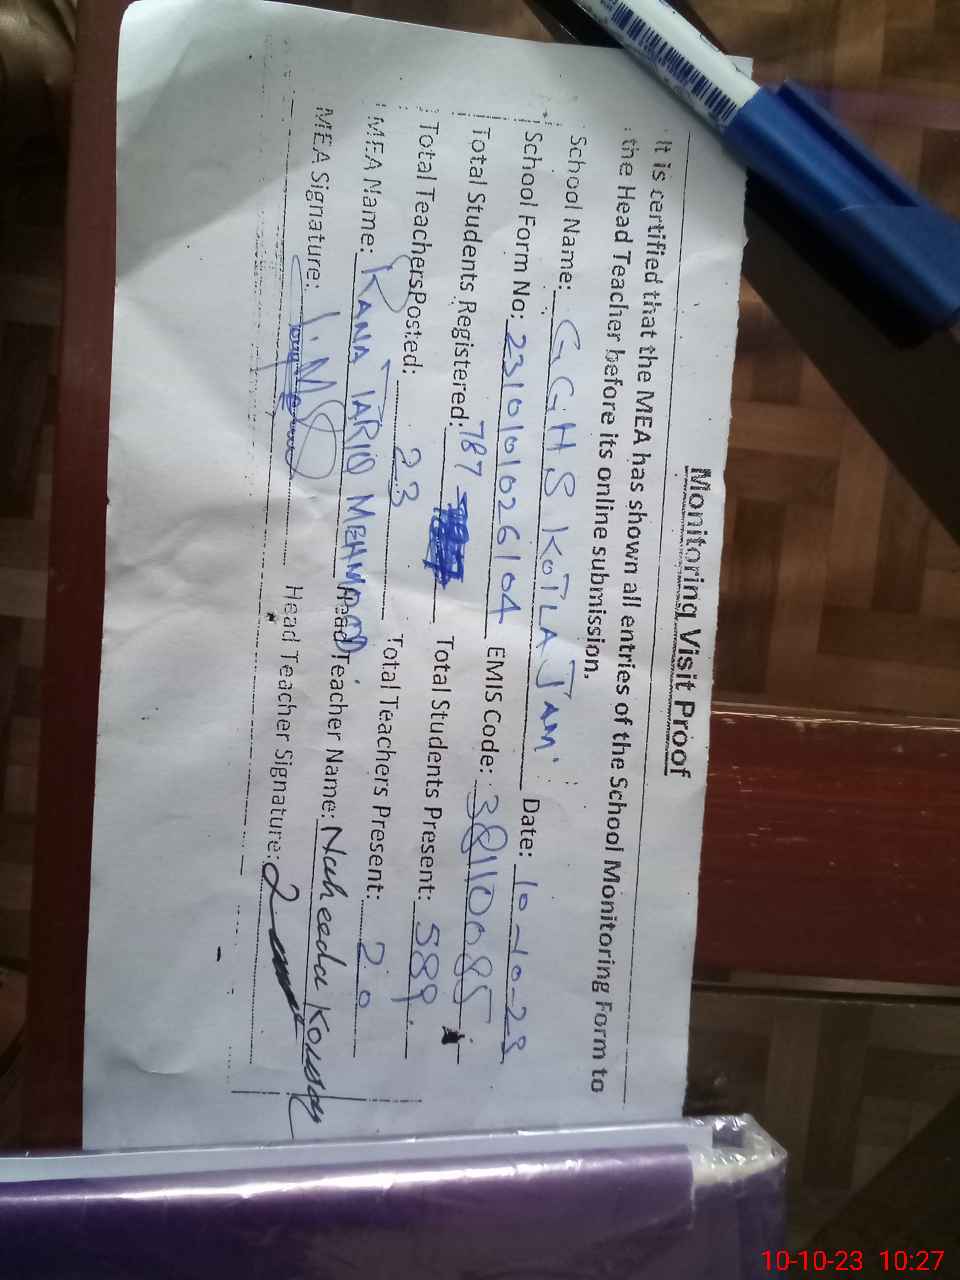 Monitoring Visit Proof
It is certified that the MEA has shown all entries of the School Monitoring Form to
the Head Teacher before its online submission.
School Name: GGHS KOTLA JAM
School Form No: 2310101026104 Date: 10-10-23
Total Students Registered: 787 EMIS Code: 38110085
Total Teachers Posted: 23 Total Students Present: 589
MEA Name: RANA TARIQ MEHMOOD Total Teachers Present: 20
MEA Signature: Head Teacher Name: Naheeda Kousar
Head Teacher Signature:
10-10-23 10:27